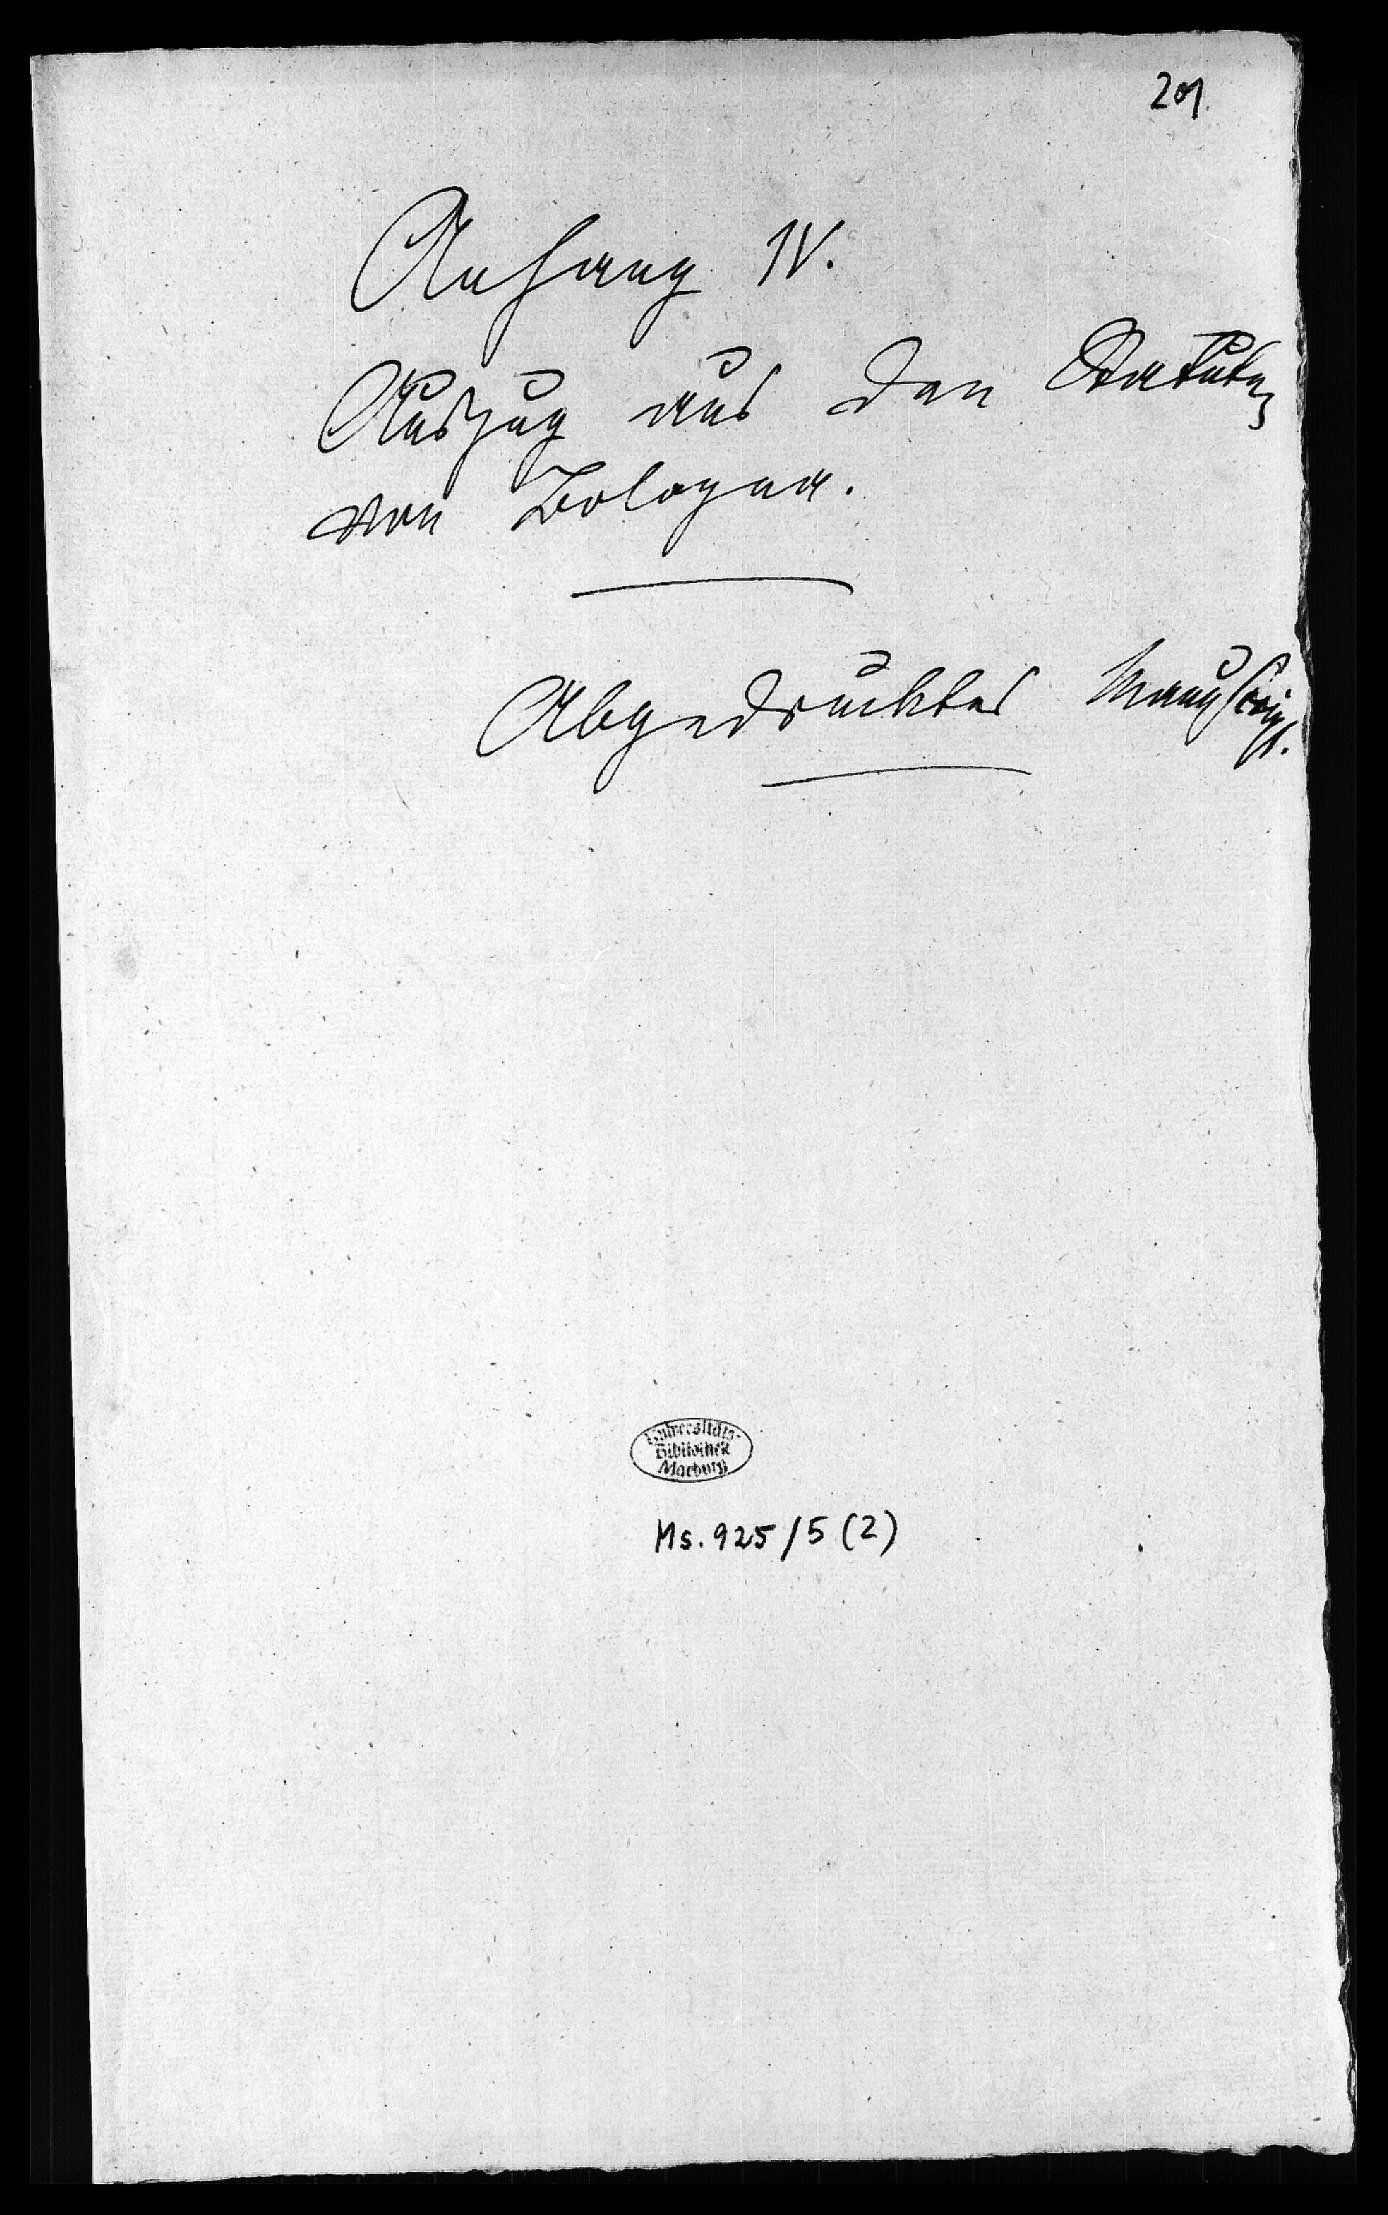 201.
Anhang IV.
Auszug aus den Statuten
von Bologna.
Abgedrucktes Manuscript.
Universitäts-
Bibliothek
Marburg
Ms. 925/5 (2)